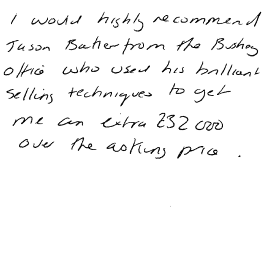 I would highly recommend
Jason Batter from the Bushey
office who used his brilliant
selling techniques to get
me an extra £32 000
over the asking price .